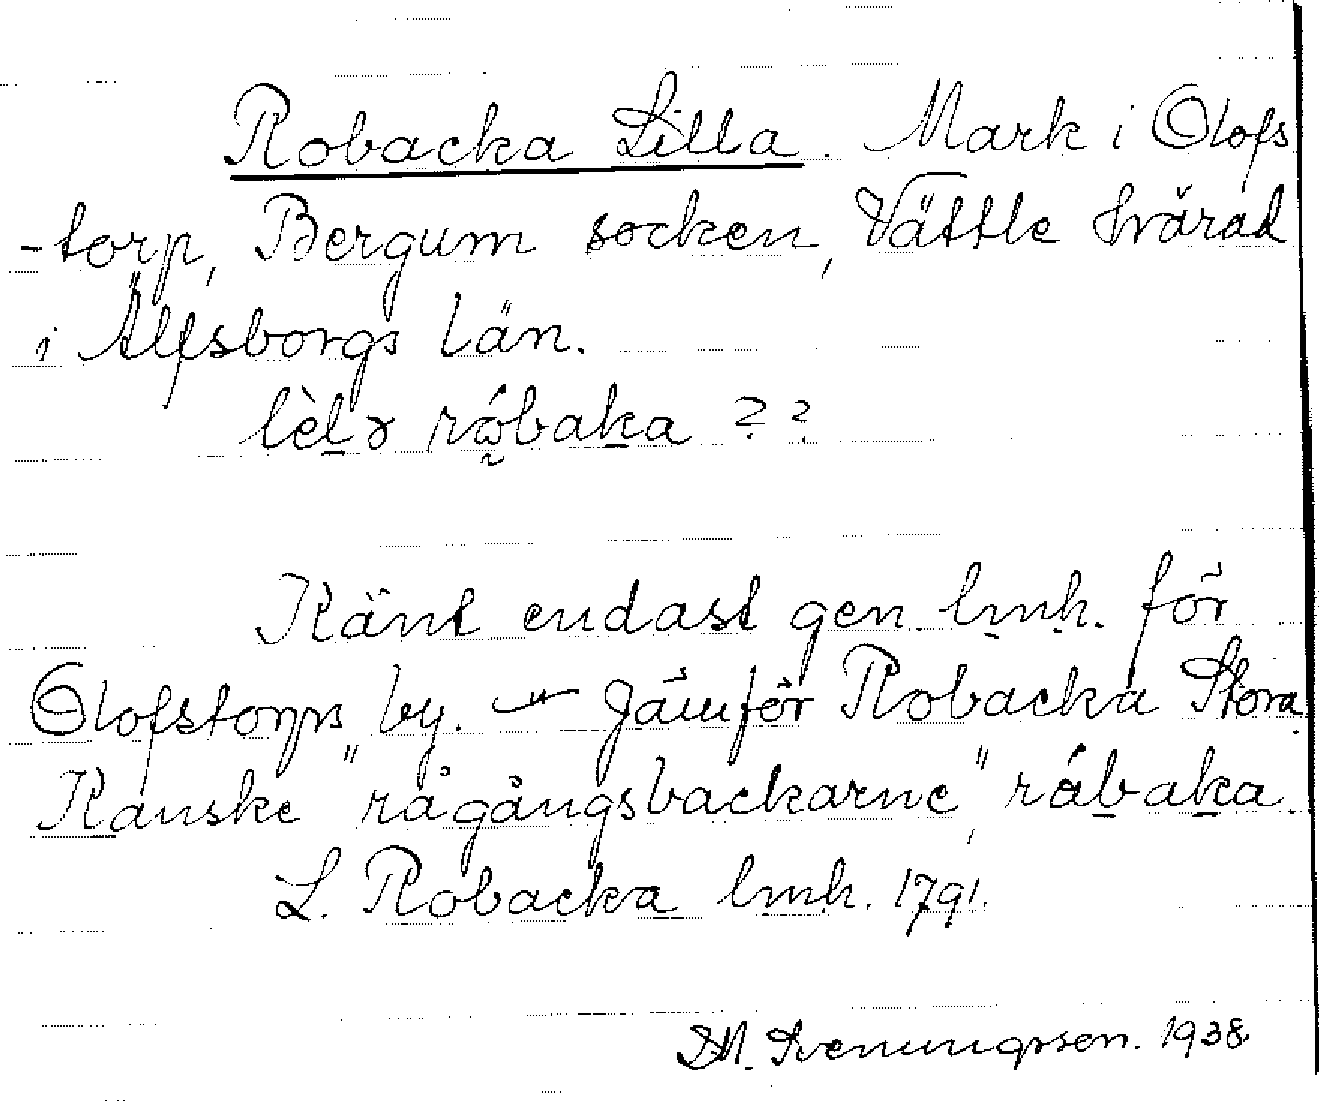 Robacka Lilla. Mark i Olofs
-torp, Bergum socken, Vättle härad
i Älfsborgs län.
lèlɘ rǻbaka ??
Känt endast gen. lmh. för
Olofstorps by. — Jämför Robacka Stora
Kanske "rågångsbackarne", råbaka
L. Robacka lmh. 1791.
D.M. Svenungsson. 1938